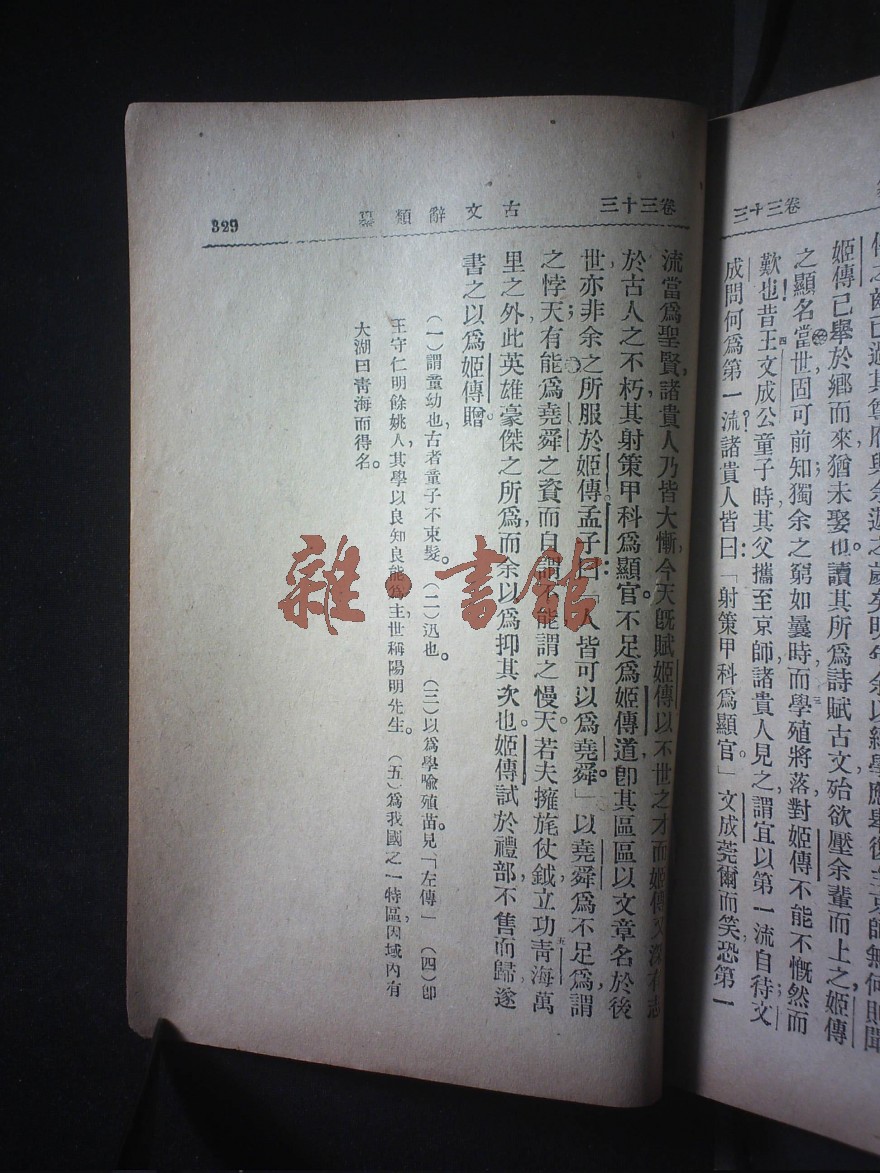 卷三十三
姬傳已舉於鄉而來猶未娶也。讀其所爲詩賦古文殆欲壓余輩而上之姬傳
之顯名當世固可前知獨余之窮如曩時而學殖將落對姬傳不能不慨然而
歎也昔王文成公童子時其父攜至京師諸貴人見之謂宜以第一流自待文
成問何爲第一流諸貴人皆曰：「射策甲科爲顯官。」文成莞爾而笑恐第一
卷三十三
古文辭類纂
329
流當爲聖賢諸貴人乃皆大慚今天既賦姬傳以不世之才而姬傳又深有志
於古人之不朽其射策甲科爲顯官不足爲姬傳道卽其區區以文章名於後
世亦非余之所服於姬傳。孟子曰：「人皆可以爲堯舜」以堯舜爲不足爲謂
之悖天有能爲堯舜之資而自謂不能謂之慢天。若夫擁旄仗鉞立功青海萬
里之外此英雄豪傑之所爲而余以爲抑其次也。姬傳試於禮部不售而歸遂
書之以爲姬傳贈。
（一）謂童幼也古者童子不束髮。（二）迅也。（三）以爲學喻殖苗。見「左傳」（四）卽
王守仁明餘姚人其學以良知良能爲主世稱陽明先生。（五）爲我國之一特區因域內有
大湖曰青海而得名。
雜·書館